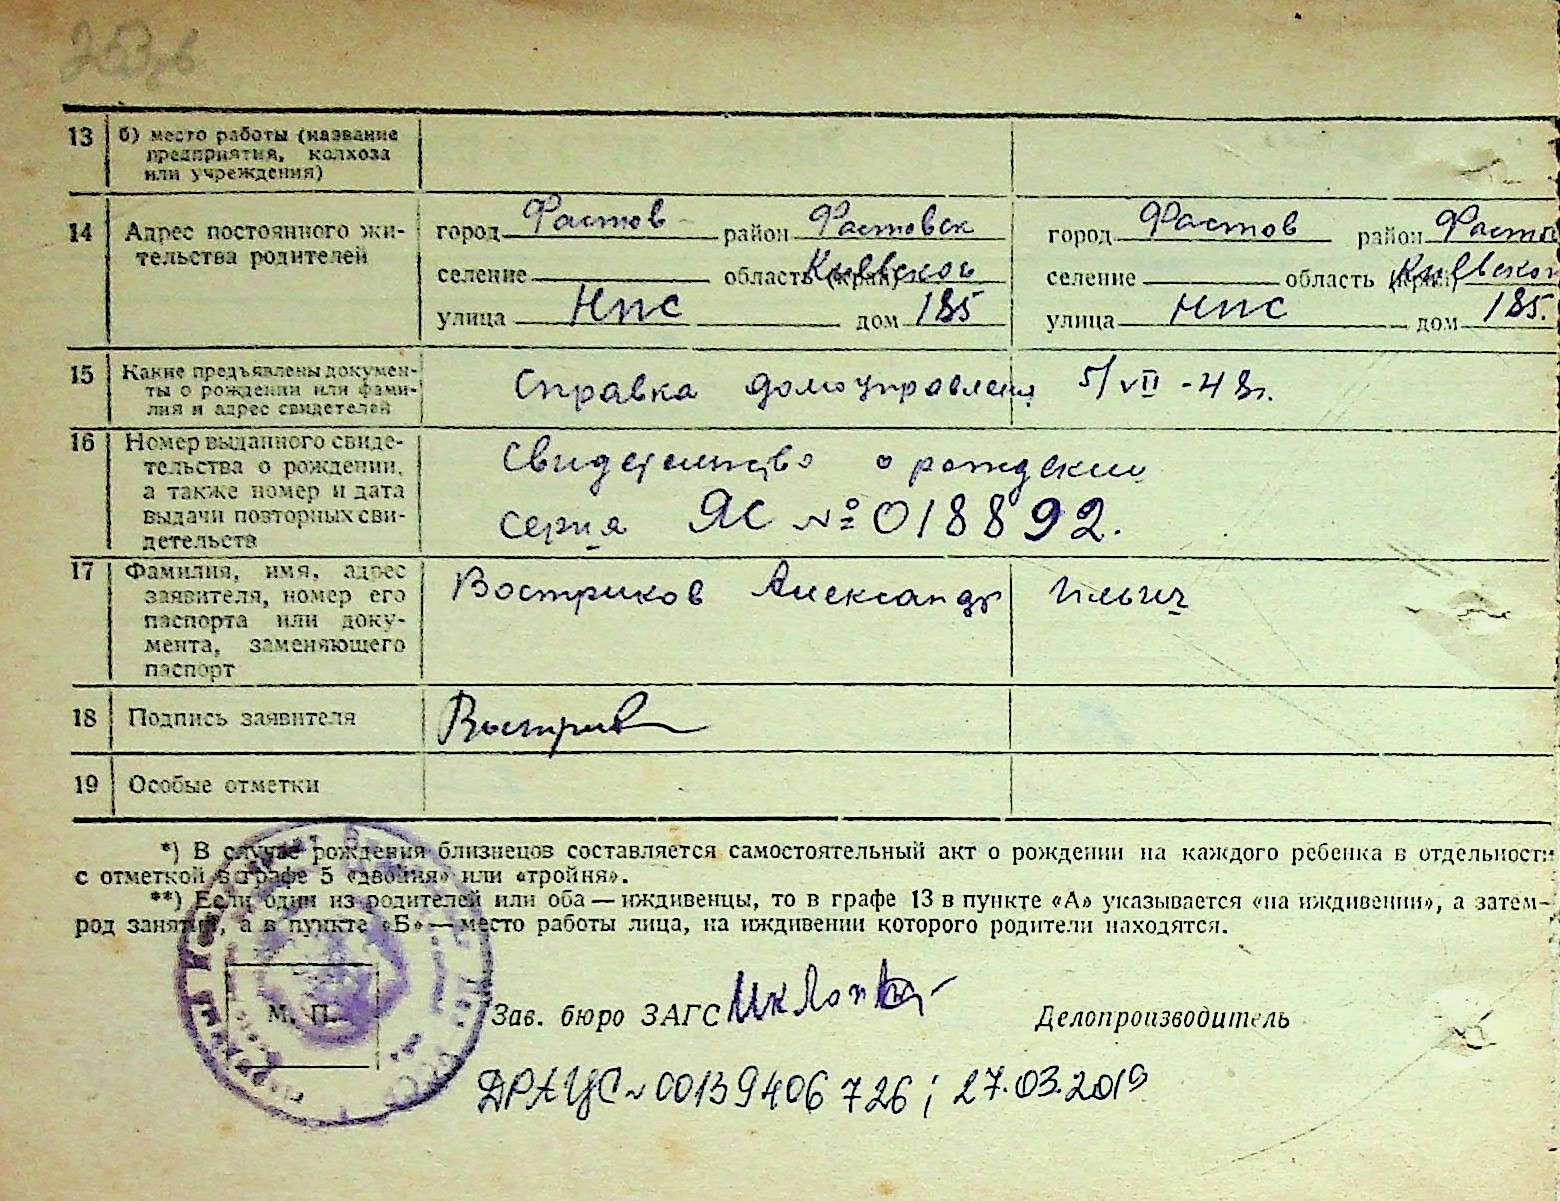 13 б) место работы (название
предприятия, колхоза
или учреждения)
14 Адрес постоянного жи-
тельства родителей
город Фастов район Фастовск
селение область (край) Киевской
улица НПС дом 185
город Фастов район Фастов
селение область (край) Киевской
улица НПС дом 185.
15 Какие предъявлены докумен-
ты о рождении или фами-
лия и адрес свидетелей
Справка домоуправления 5/VII - 48г.
16 Номер выданного свиде-
тельства о рождении,
а также номер и дата
выдачи повторных сви-
детельств
Свидетельство о рождении
серия ЯС № 018892.
17 Фамилия, имя, адрес
заявителя, номер его
паспорта или доку-
мента, заменяющего
паспорт
Востриков Александр Ильич
18 Подпись заявителя
19 Особые отметки
*) В случае рождения близнецов составляется самостоятельный акт о рождении на каждого ребенка в отдельности
с отметкой в графе 5 «двойня» или «тройня».
**) Если один из родителей или оба — иждивенцы, то в графе 13 в пункте «А» указывается «на иждивении», а затем—
род занятий, а в пункте «Б» — место работы лица, на иждивении которого родители находятся.
М. П.
Зав. бюро ЗАГС Делопроизводитель
ДРАЦС № 00139406726; 27.03.2019